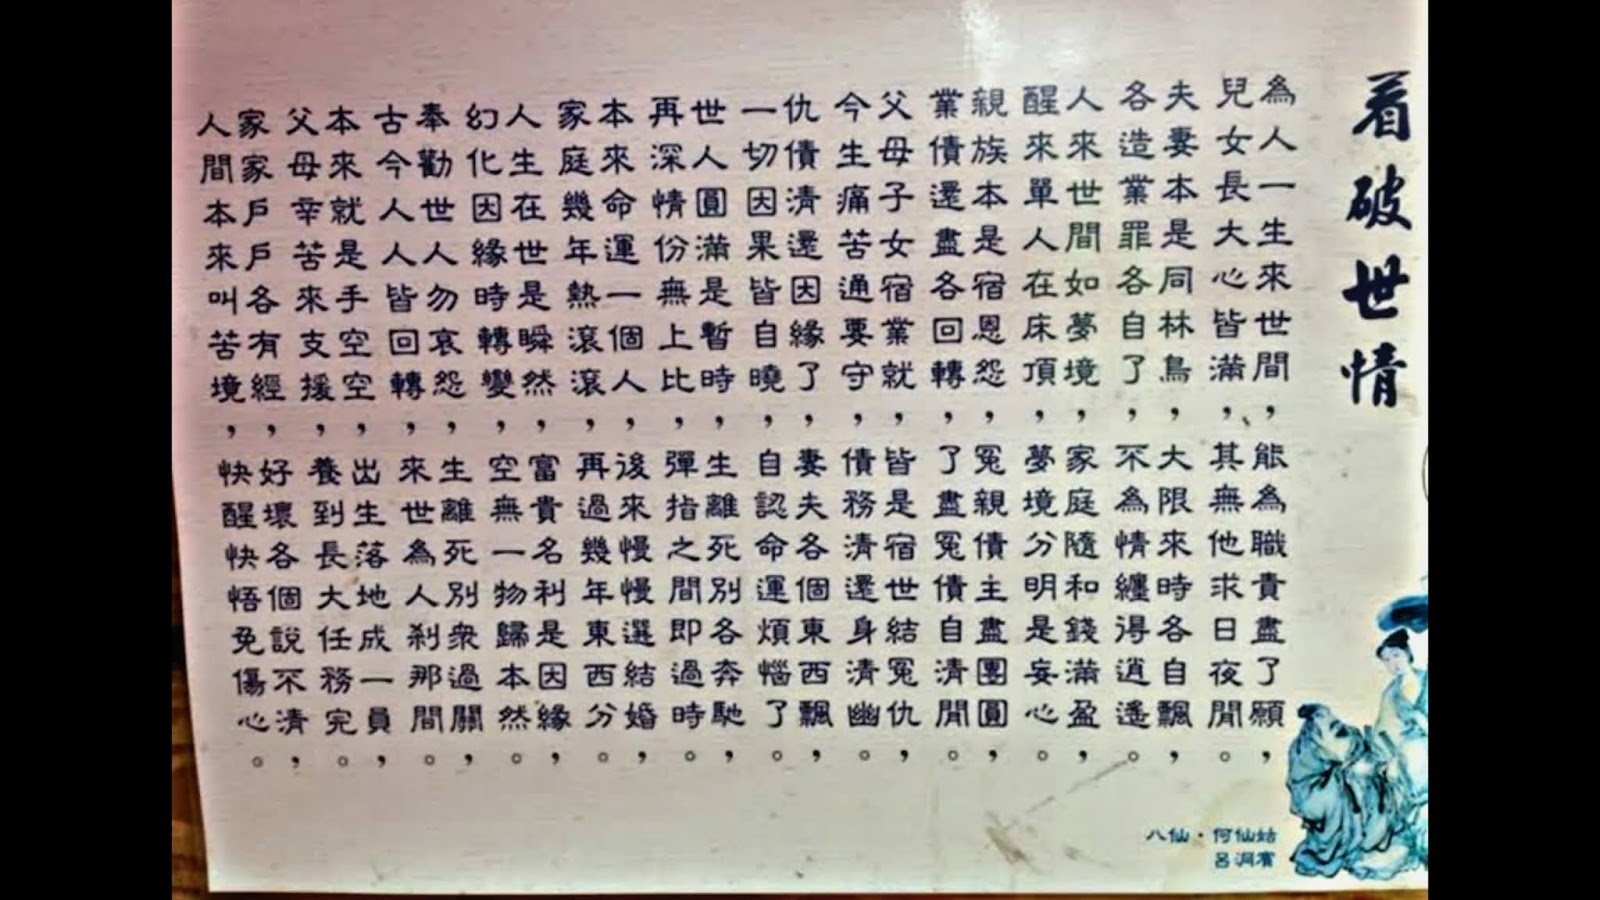 看破世情
為人一生來世間，能為職責盡了願，
兒女長大心皆滿，其無他求日夜閒。
夫妻本是同林鳥，大限來時各自飄，
各造業罪各自了，不為情纏得逍遙。
人來世間如夢境，家庭隨和錢滿盈，
醒來單人在床頂，夢境分明是妄心。
親族本是宿恩怨，冤親債主盡團圓，
業債還盡各回轉，了盡冤債自清閒。
父母子女宿業就，皆是宿世結冤仇，
今生痛苦通要守，債務清還身清幽。
仇債清還因緣了，妻夫各個東西飄，
一切因果皆自曉，自認命運煩惱了。
世人圓滿是暫時，生離死別各奔馳，
再深情份無上比，彈指之間即過時。
本來命運一個人，後來慢慢選結婚，
家庭幾年熱滾滾，再過幾年東西分。
人生在世是瞬然，富貴名利是因緣，
幻化因緣時轉變，空無一物歸本然。
奉勸世人勿哀怨，生離死別眾過關，
古今人人皆回轉，來世為人剎那間。
本來就是手空空，出生落地成一員，
父母辛苦來支援，養到長大任務完。
家家戶戶各有經，好壞各個說不清，
人間本來叫苦境，快醒快悟免傷心。
八仙·何仙姑
呂洞賓